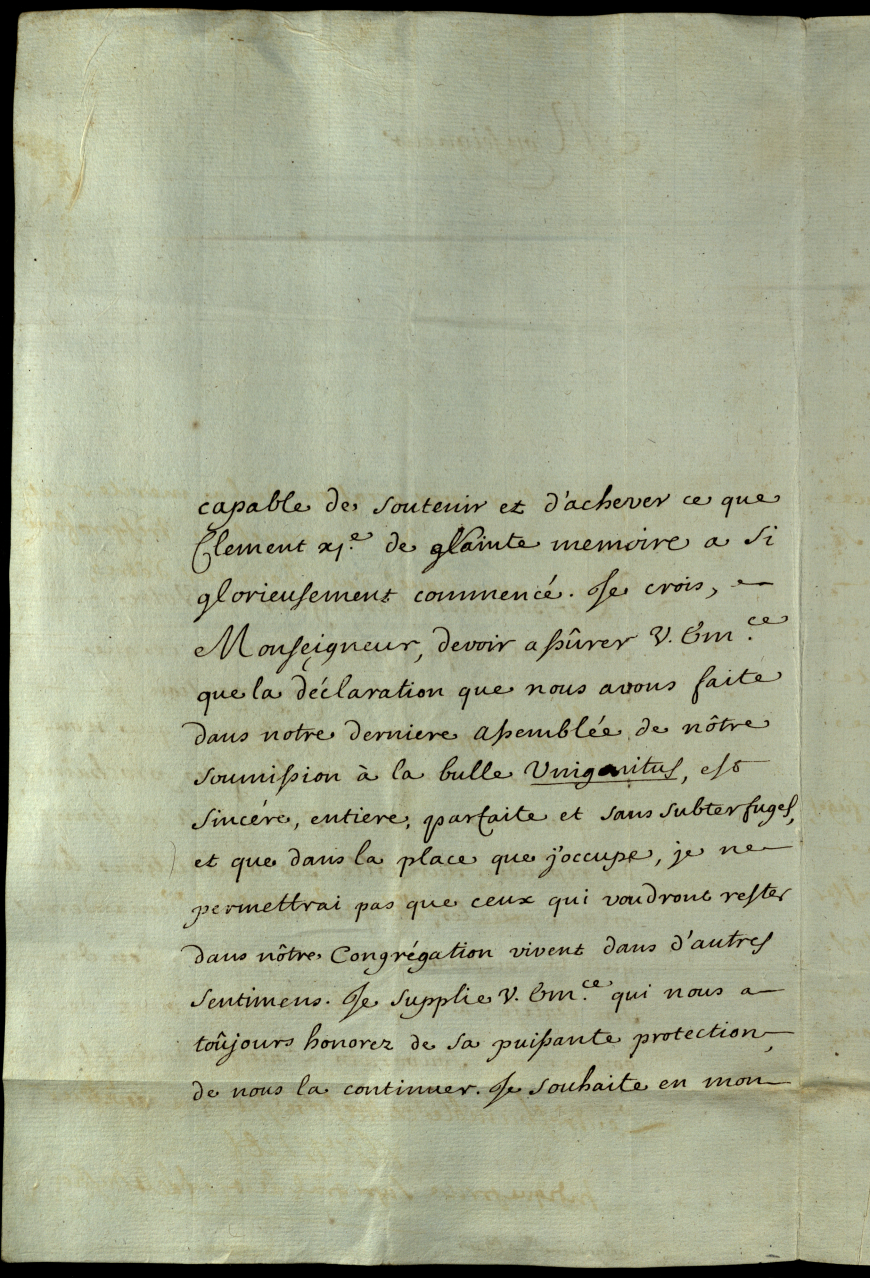 capable de soutenir et d'achever ce que
Clement xj.e de Sainte memoire a si
glorieusement commencé. Je crois,
Monseigneur, devoir assûrer V. Em.ce
que la déclaration que nous avons faite
dans notre derniere assemblée de nôtre
soumission à la bulle Unigenitus, est
sincére, entiere, parfaite et sans subterfuges,
et que dans la place que j'occupe, je ne
permettrai pas que ceux qui voudront rester
dans nôtre Congrégation vivent dans d'autres
sentimens. Je supplie V. Em.ce qui nous a
toûjours honorez de sa puissante protection,
de nous la continuer. Je souhaite en mon